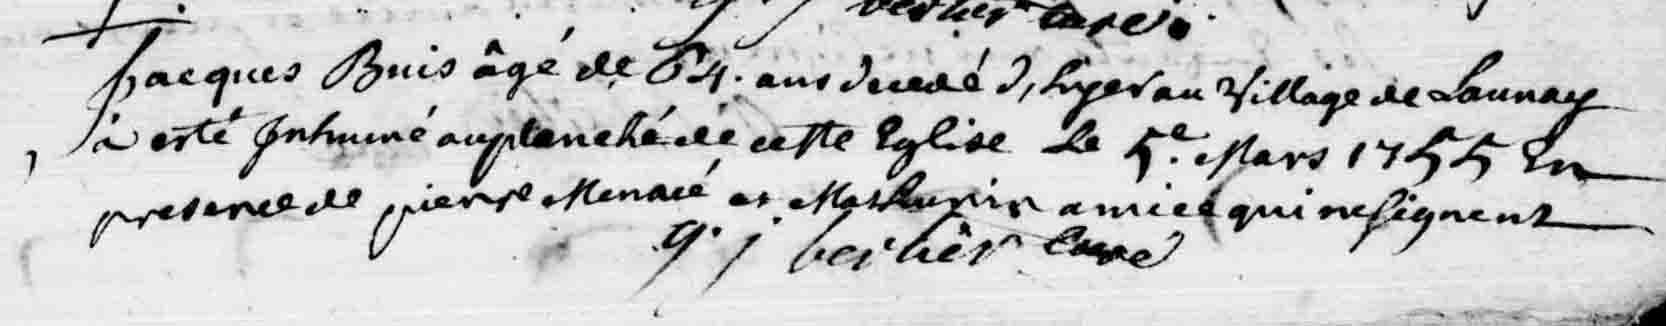 curé
Jacques Buis âgé de 64. ans decedé d'hyer au Village de Launay
a esté Inhumé au planché de cette Eglise Le 5e. Mars 1755 En
presence de pierre Menacé et Mathurin amice qui ne signent
g. j berhier Curé